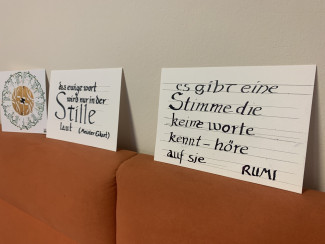 das ewige wort
wird nur in der
Stille
laut (Meister Eckart)
es gibt eine
Stimme die
keine worte
kennt - höre
auf sie RUMI